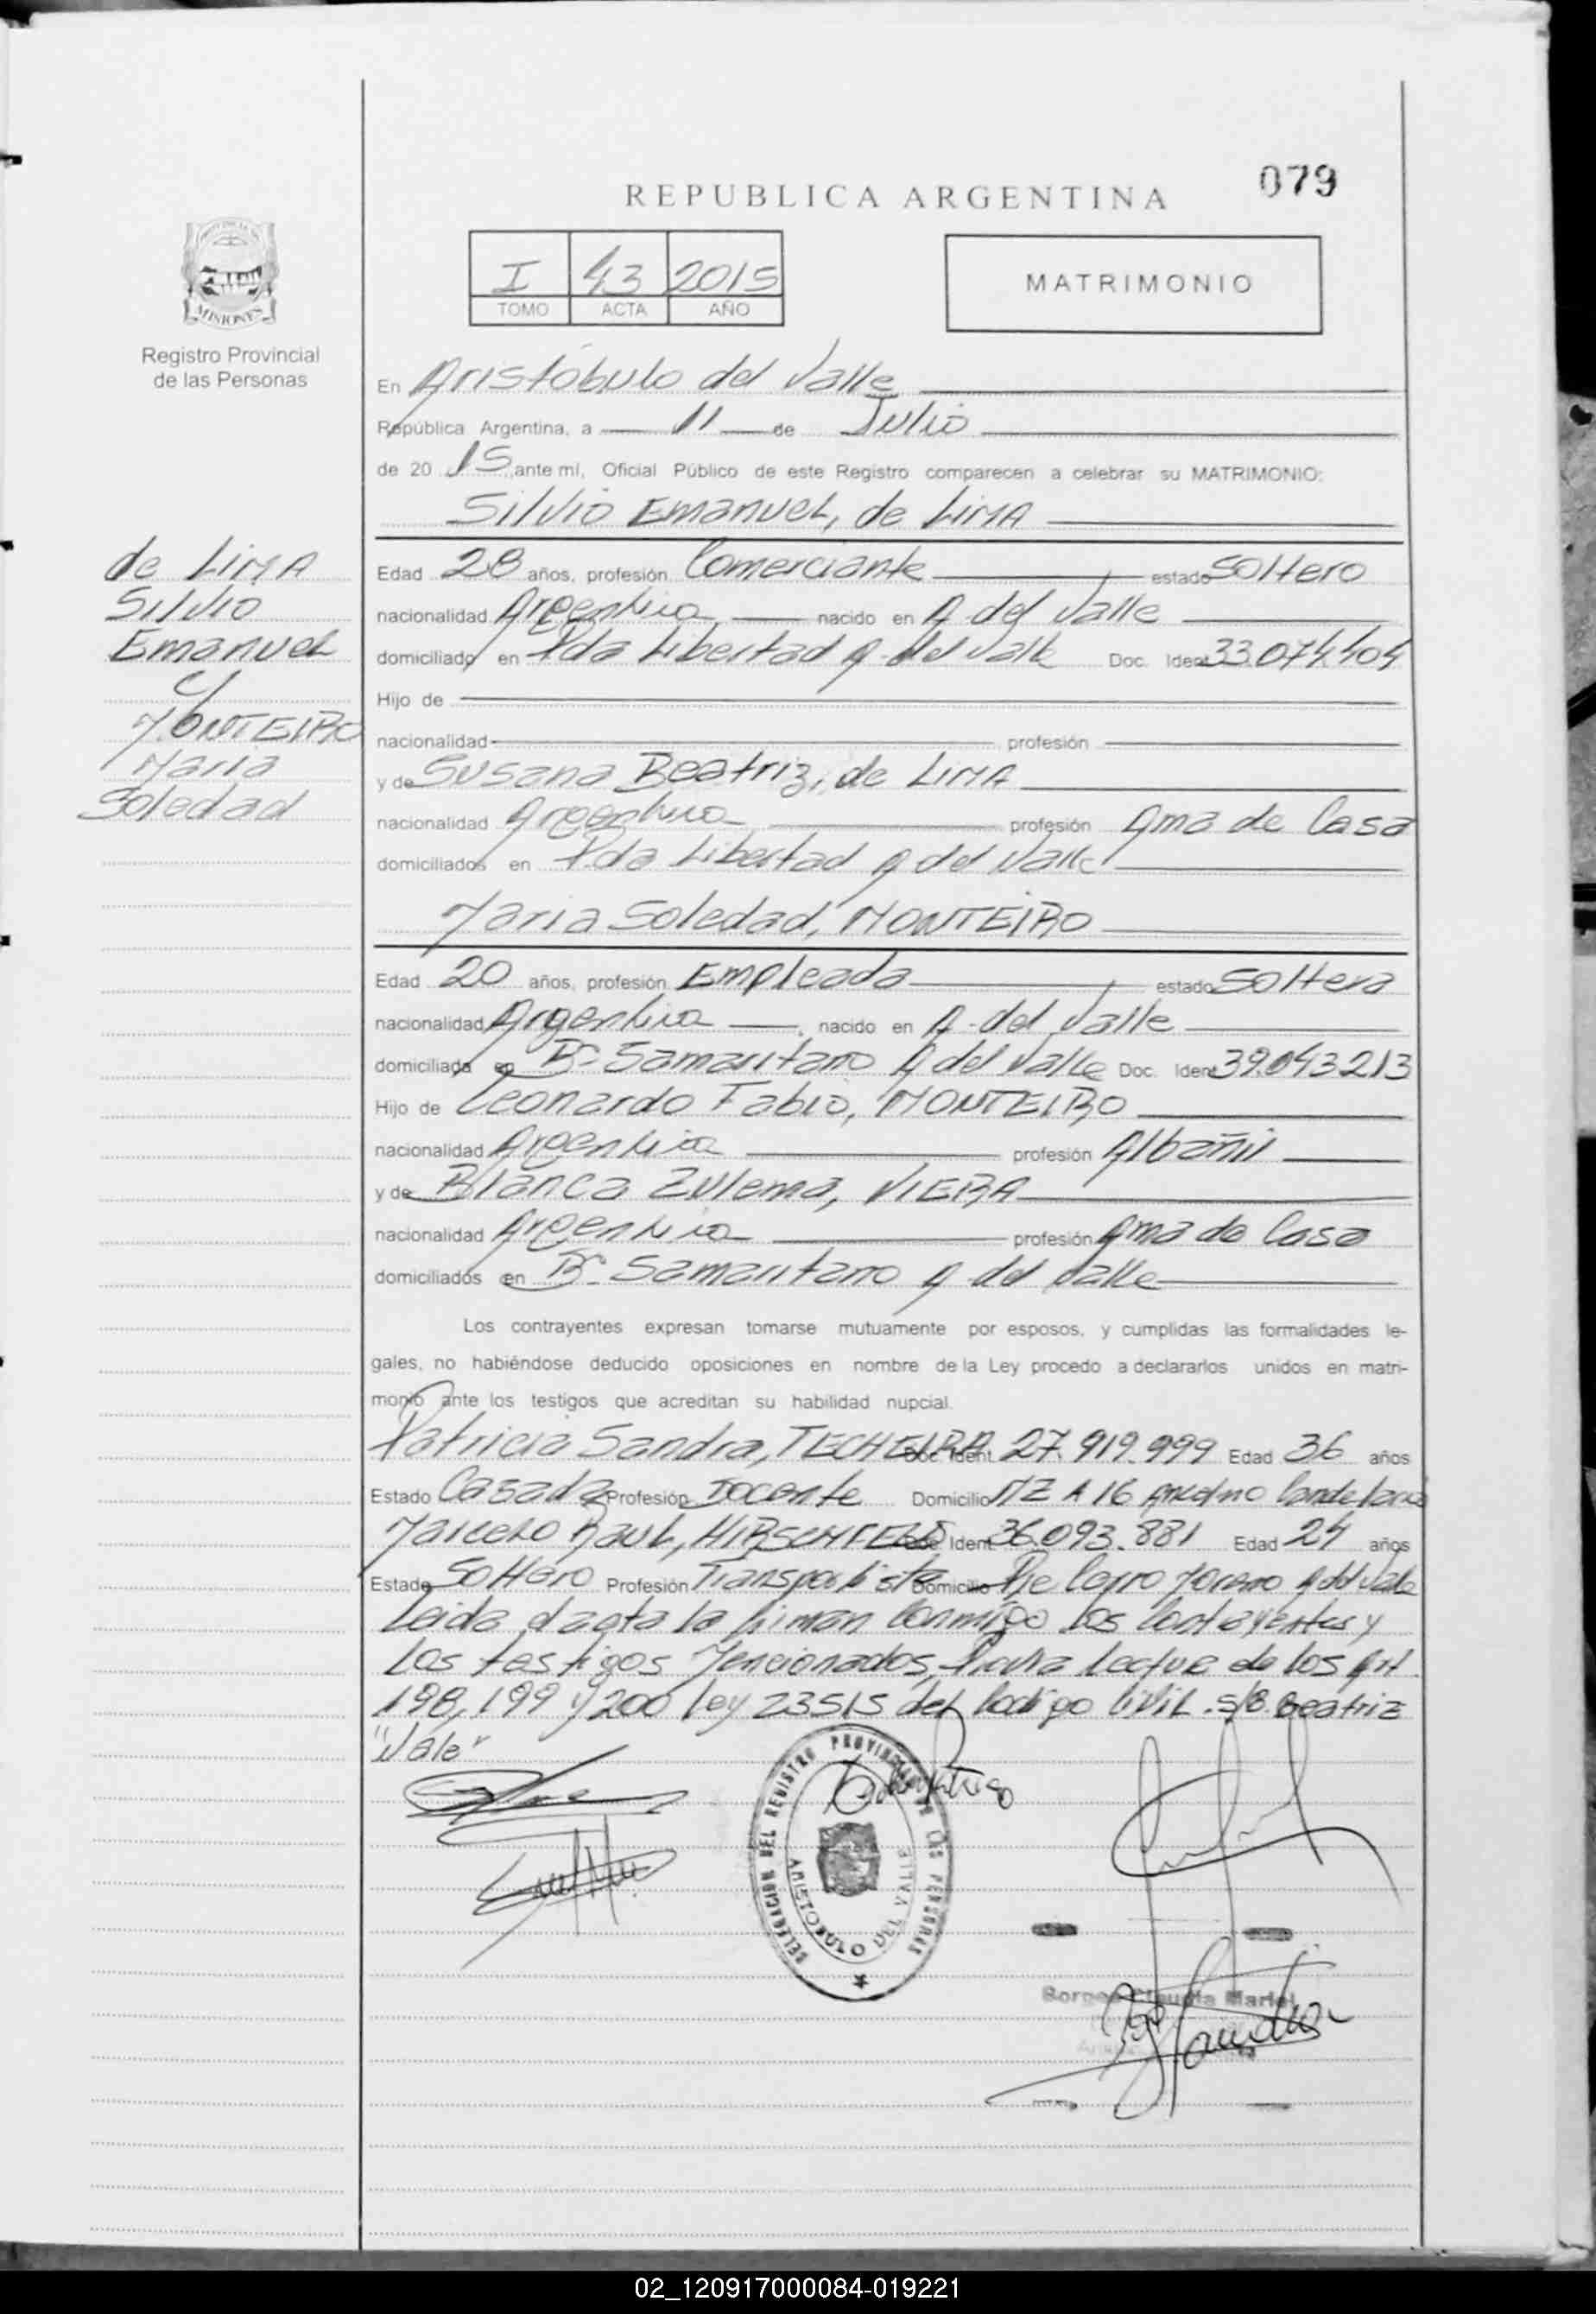 079
REPUBLICA ARGENTINA
I 43 2015
TOMO ACTA AÑO
MATRIMONIO
MISIONES
Registro Provincial
de las Personas
de LIMA
Silvio
Emanuel
c/
MONTEIRO
Maria
Soledad
En Aristóbulo del Valle
República Argentina, a 11 de Julio
de 20 15 ante mí, Oficial Público de este Registro comparecen a celebrar su MATRIMONIO:
Silvio Emanuel, de LIMA
Edad 28 años, profesión Comerciante estado Soltero
nacionalidad Argentina nacido en A del Valle
domiciliado en Pda Libertad A. del Valle Doc. Ident 33.074.404
Hijo de
nacionalidad profesión
y de Susana Beatriz, de LIMA
nacionalidad Argentina profesión Ama de Casa
domiciliados en Pda Libertad A del Valle
Maria Soledad, MONTEIRO
Edad 20 años, profesión Empleada estado Soltera
nacionalidad Argentina, nacido en A. del Valle
domiciliada en Bº Samaritano A del Valle Doc. Ident 39.043.213
Hijo de Leonardo Fabio, MONTEIRO
nacionalidad Argentina profesión Albañil
y de Blanca Zulema, VIERA
nacionalidad Argentina profesión Ama de Casa
domiciliados en Bº Samaritano A del Valle
Los contrayentes expresan tomarse mutuamente por esposos, y cumplidas las formalidades le-
gales, no habiéndose deducido oposiciones en nombre de la Ley procedo a declararlos unidos en matri-
monio ante los testigos que acreditan su habilidad nupcial.
Patricia Sandra, TECHEIRA Doc Ident. 27.919.999 Edad 36 años
Estado Casada Profesión Docente Domicilio MZ A 16 Candelaria
Marcelo Raul, HIRSCHFELD Doc Ident 36.093.881 Edad 24 años
Estado Soltero Profesión Transportista Domicilio Pje Cerro Moreno A del Valle
Leida el acta la firman conmigo los contrayentes y
los testigos mencionados, Previa lectura de los Art
198, 199 y 200 ley 23515 del Codigo Civil. s/B. Beatriz
"Vale"
DELEGACION DEL REGISTRO PROVINCIAL DE LAS PERSONAS
ARISTOBULO DEL VALLE
Claudia Mariel
02_120917000084-019221